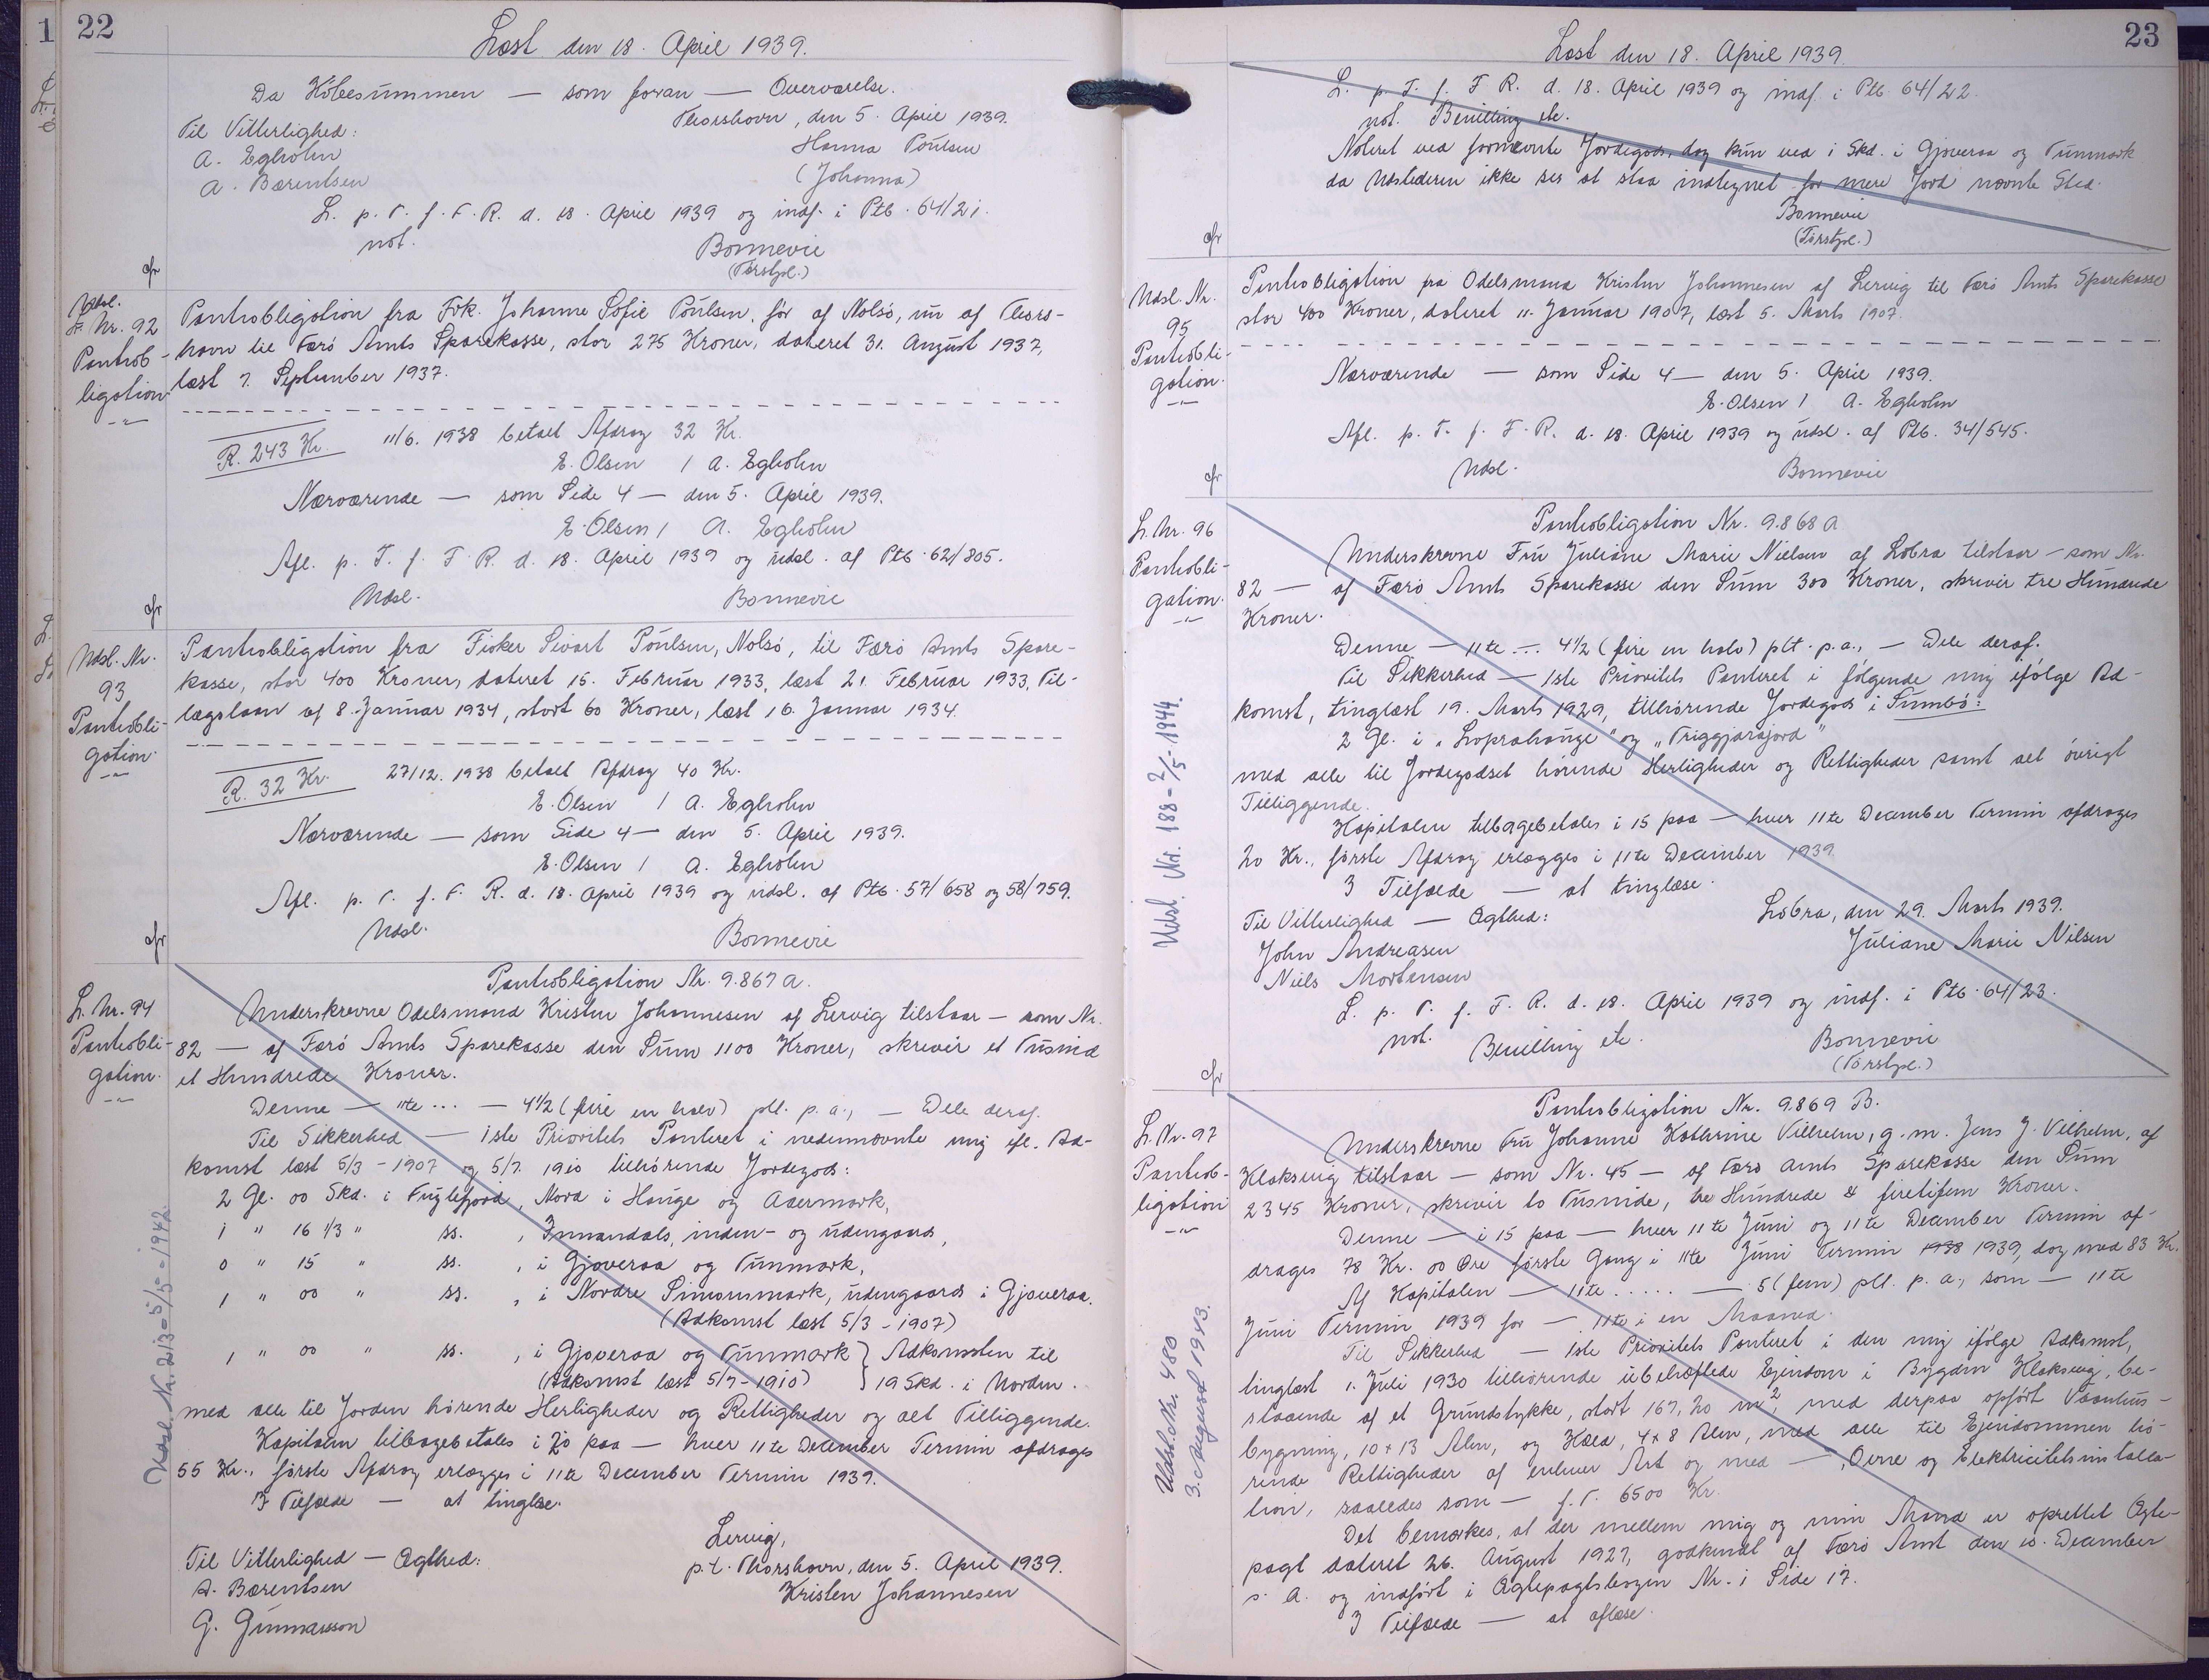 22
Læst den 18. April 1939.
Da Köbesummen — som foran — Overværelse.
Thorshavn, den 5. April 1939.
Til Vitterlighed:
Hanna Poulsen
A. Egholm
(Johanna)
A. Bærentsen
L. p. T. f. F. R. d. 18. April 1939 og indf. i Ptb. 64/21.
not.
Bonnevie
(Førstpl.)
cfr
Udsl. Nr. 92
Pantobligation
Pantobligation fra Frk. Johanne Sofie Poulsen, før af Nolsö, nu af Thors-
havn til Færö Amts Sparekasse, stor 275 Kroner, dateret 31. August 1937,
læst 7. September 1937.
R. 243 Kr.
11/6. 1938 betalt Afdrag 32 Kr.
E. Olsen / A. Egholm
Nærværende — som Side 4 — den 5. April 1939.
E. Olsen / A. Egholm
Afl. p. T. f. F. R. d. 18. April 1939 og udsl. af Ptb. 62/805.
Udsl.
Bonnevie
cfr
Udsl. Nr.
93
Pantobli-
gation.
Pantobligation fra Fisker Sivert Poulsen, Nolsö, til Færö Amts Spare-
kasse, stor 400 Kroner, dateret 15. Februar 1933, læst 21. Februar 1933, Til-
lægslaan af 8. Januar 1934, stort 60 Kroner, læst 16. Januar 1934.
R. 32 Kr.
27/12. 1938 betalt Afdrag 40 Kr.
E. Olsen / A. Egholm
Nærværende — som Side 4 — den 5. April 1939.
E. Olsen / A. Egholm
Afl. p. T. f. F. R. d. 18. April 1939 og udsl. af Ptb. 57/658 og 58/759.
Udsl.
Bonnevie
cfr
L. Nr. 94
Pantobli-
gation.
Pantobligation Nr. 9.867 a.
Underskrevne Odelsmand Kristen Johannesen af Lervig tilstaar — som Nr.
82 — af Færö Amts Sparekasse den Sum 1100 Kroner, skriver et Tusind
et Hundrede Kroner.
Denne — 11te ... — 4½ (fire en halv) pCt. p. a., — Dele deraf.
Til Sikkerhed — 1ste Prioritets Panteret i nedennævnte mig ifl. Ad-
komst læst 5/3 - 1907 og 5/7. 1910 tilhörende Jordegods:
2 Gl. 00 Skd. i Fuglefjord, Nord i Hauge og Adermark,
1 " 16 1/3 " ss. , Innandals, inden- og udengaards,
0 " 15 " ss. , i Gjoveraa og Tunmark,
1 " 00 " ss. , i Nordre Simonsmark, udengaards i Gjoveraa.
(Adkomst læst 5/3 - 1907)
1 " 00 " ss. , i Gjoveraa og Tunmark } Adkomsten til
(Adkomst læst 5/7 - 1910) } 19 Skd. i Norden.
med alle til Jorden hörende Herligheder og Rettigheder og alt Tilliggende.
Kapitalen tilbagebetales i 20 paa — hver 11te December Termin afdrages
55 Kr., förste Afdrag erlægges i 11te December Termin 1939.
I Tilfælde — at tinglæse.
Lervig,
Til Vitterlighed — Ægthed:
p.t. Thorshavn, den 5. April 1939.
A. Bærentsen
Kristen Johannesen
G. Gunnarsson
Udsl. Nr. 213 - 5/5 - 1942.
23
Læst den 18. April 1939.
L. p. T. f. F. R. d. 18. April 1939 og indf. i Ptb. 64/22.
not. Bevilling etc.
Noteret ved fornævnte Jordegods, dog kun ved i Skd. i Gjoveraa og Tunmark
da Udstederen ikke ses at staa indtegnet for mere Jord nævnte Sted.
Bonnevie
(Førstpl.)
cfr
Udsl. Nr.
95
Pantobli-
gation.
Pantobligation fra Odelsmand Kristen Johannesen af Lervig til Færö Amts Sparekasse
stor 400 Kroner, dateret 11. Januar 1907, læst 5. Marts 1907.
Nærværende — som Side 4 — den 5. April 1939.
E. Olsen / A. Egholm
Afl. p. T. f. F. R. d. 18. April 1939 og udsl. af Ptb. 34/545.
Udsl.
Bonnevie
cfr
L. Nr. 96
Pantobli-
gation.
Pantobligation Nr. 9.868 a
Underskrevne Fru Juliane Marie Nielsen af Lobra tilstaar — som Nr.
82 — af Færö Amts Sparekasse den Sum 300 Kroner, skriver tre Hundrede
Kroner.
Denne — 11te ... 4½ (fire en halv) pCt. p. a., — Dele deraf.
Til Sikkerhed — 1ste Prioritets Panteret i fölgende mig ifölge Ad-
komst, tinglæst 19. Marts 1929, tilhörende Jordegods i Sumbö:
2 Gl. i „Loprahauge" og „Triggjarajord"
med alle til Jordegodset hörende Herligheder og Rettigheder samt alt övrigt
Tilliggende.
Kapitalen tilbagebetales i 15 paa — hver 11te December Termin afdrages
20 Kr., förste Afdrag erlægges i 11te December 1939.
I Tilfælde — at tinglæse.
Til Vitterlighed — Ægthed:
Lobra, den 29. Marts 1939.
John Andreasen
Juliane Marie Nilsen
Niels Mortensen
L. p. T. f. F. R. d. 18. April 1939 og indf. i Ptb. 64/23.
not. Bevilling etc.
Bonnevie
(Førstpl.)
cfr
Udsl. Nr. 188 - 2/5 - 1944.
L. Nr. 97
Pantob-
ligation
Pantobligation Nr. 9.869 B.
Underskrevne Fru Johanne Kathrine Vilhelm, g. m. Jens J. Vilhelm, af
Klaksvig tilstaar — som Nr. 45 — af Færö Amts Sparekasse den Sum
2345 Kroner, skriver to Tusinde, tre Hundrede & firetifem Kroner.
Denne — i 15 paa — hver 11te Juni og 11te December Termin af-
drages 78 Kr. 00 Öre förste Gang i 11te Juni Termin 1938 1939, dog med 83 Kr.
Af Kapitalen — 11te ..... — 5 (fem) pCt. p. a., som — 11te
Juni Termin 1939 for — 11te i en Maaned.
Til Sikkerhed — 1ste Prioritets Panteret i den mig ifölge Adkomst,
tinglæst 1. Juli 1930 tilhörende ubehæftede Ejendom i Bygden Klaksvig, be-
staaende af et Grundstykke, stort 167,20 m², med derpaa opfört Vaanhus-
bygning, 10 + 13 Alen, og Hæld, 4 x 8 Alen, med alle til Ejendommen hö-
rende Rettigheder af enhver Art og med —, Ovne og Elektricitetsinstalla-
tion, saaledes som — f. T. 6500 Kr.
Det bemærkes, at der mellem mig og min Mand er oprettet Ægte-
pagt dateret 26. August 1927, godkendt af Færö Amt den 10. December
s. A. og indfört i Ægtepagtsbogen Nr. 1 Side 17.
I Tilfælde — at aflæse.
Udsl. Nr. 480
3. August 1943.